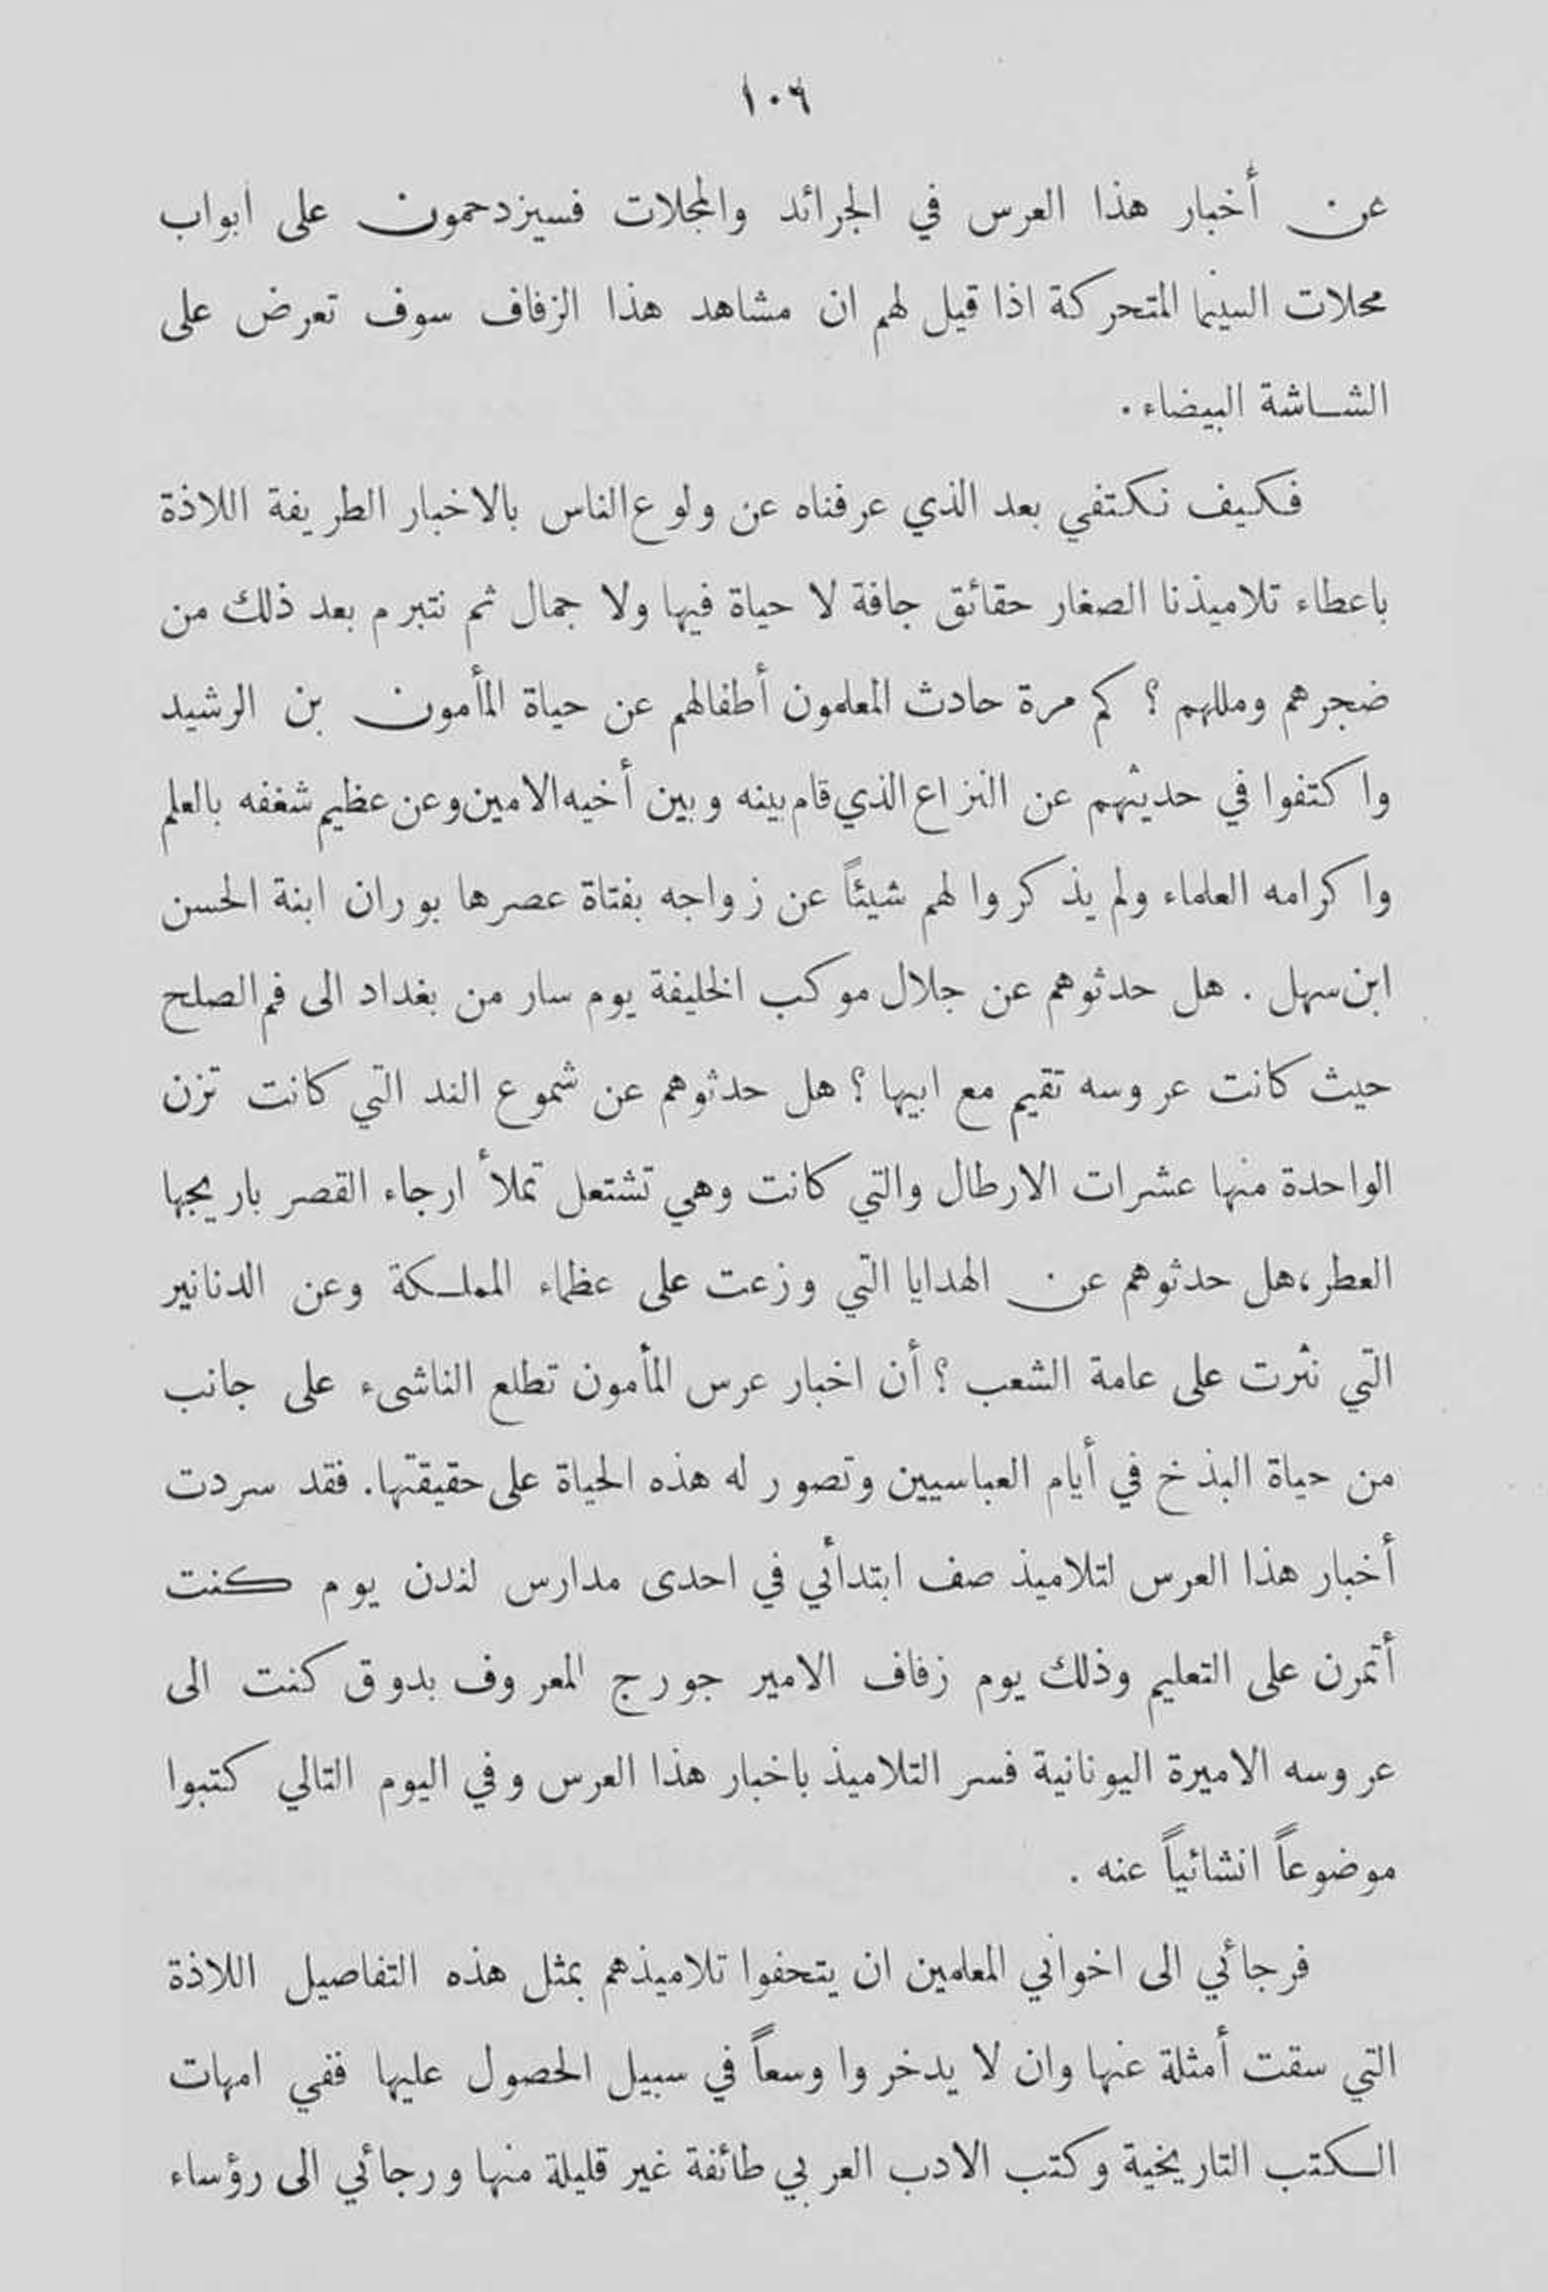 ١٠٦
عن أخبار هذا العرس في الجرائد والمجلات فسيزدحمون على ابواب
محلات السينما المتحركة اذا قيل لهم ان مشاهد هذا الزفاف سوف تعرض على
الشاشة البيضاء .
فكيف نكتفي بعد الذي عرفناه عن ولوع الناس بالاخبار الطريفة اللاذة
باعطاء تلاميذنا الصغار حقائق جافة لا حياة فيها ولا جمال ثم نتبرم بعد ذلك من
ضجرهم ومللهم ؟ كم مرة حادث المعلمون أطفالهم عن حياة المأمون بن الرشيد
واكتفوا في حديثهم عن النزاع الذي قام بينه وبين أخيه الامين وعن عظيم شغفه بالعلم
واكرامه العلماء ولم يذكروا لهم شيئاً عن زواجه بفتاة عصرها بوران ابنة الحسن
ابن سهل . هل حدثوهم عن جلال موكب الخليفة يوم سار من بغداد الى فم الصلح
حيث كانت عروسه تقيم مع ابيها ؟ هل حدثوهم عن شموع الند التي كانت تزن
الواحدة منها عشرات الارطال والتي كانت وهي تشتعل تملأ ارجاء القصر باريجها
العطر، هل حدثوهم عن الهدايا التي وزعت على عظماء المملكة وعن الدنانير
التي نثرت على عامة الشعب ؟ أن اخبار عرس المأمون تطلع الناشىء على جانب
من حياة البذخ في أيام العباسيين وتصور له هذه الحياة على حقيقتها. فقد سردت
أخبار هذا العرس لتلاميذ صف ابتدأئي في احدى مدارس لندن يوم كنت
أتمرن على التعليم وذلك يوم زفاف الامير جورج المعروف بدوق كنت الى
عروسه الاميرة اليونانية فسر التلاميذ باخبار هذا العرس وفي اليوم التالي كتبوا
موضوعاً انشائياً عنه .
فرجائي الى اخواني المعلمين ان يتحفوا تلاميذهم بمثل هذه التفاصيل اللاذة
التي سقت أمثلة عنها وان لا يدخروا وسعاً في سبيل الحصول عليها ففي امهات
الكتب التاريخية وكتب الادب العربي طائفة غير قليلة منها ورجائي الى رؤساء